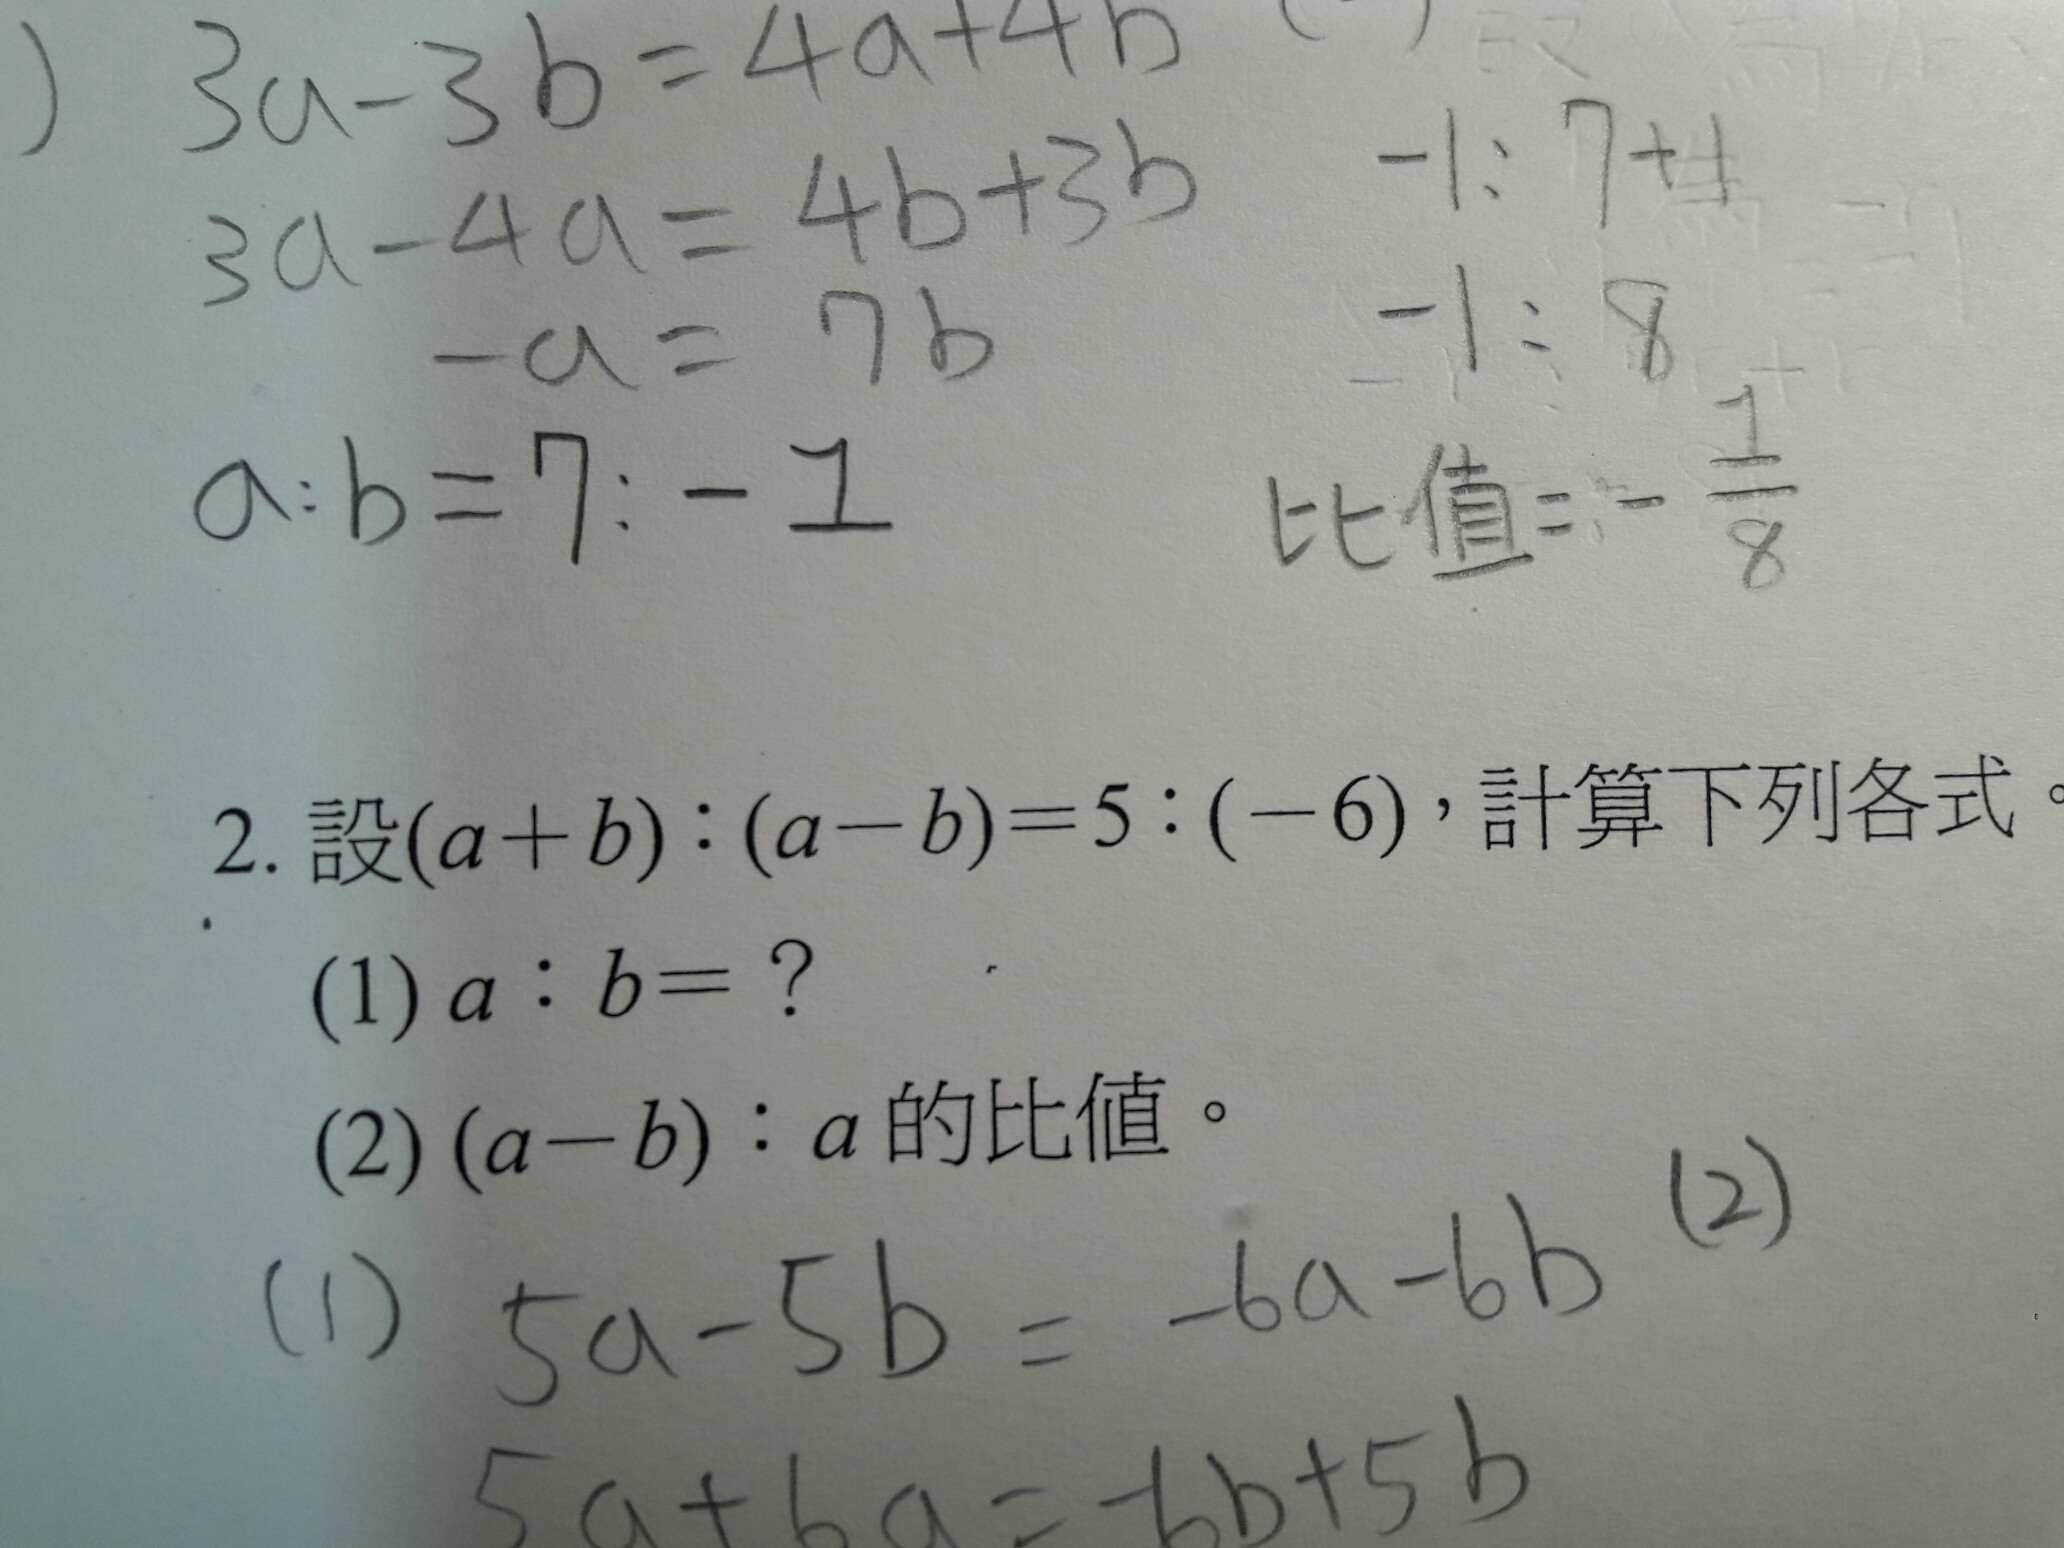 ) 3a-3b=4a+4b
3a-4a=4b+3b
-a=7b
a:b=7:-1
-1:7+1
-1:8
比值=-1/8
2. 設(a+b):(a-b)=5:(-6),計算下列各式。
(1) a:b=?
(2) (a-b):a 的比值。
(1) 5a-5b=-6a-6b
5a+6a=-6b+5b
(2)